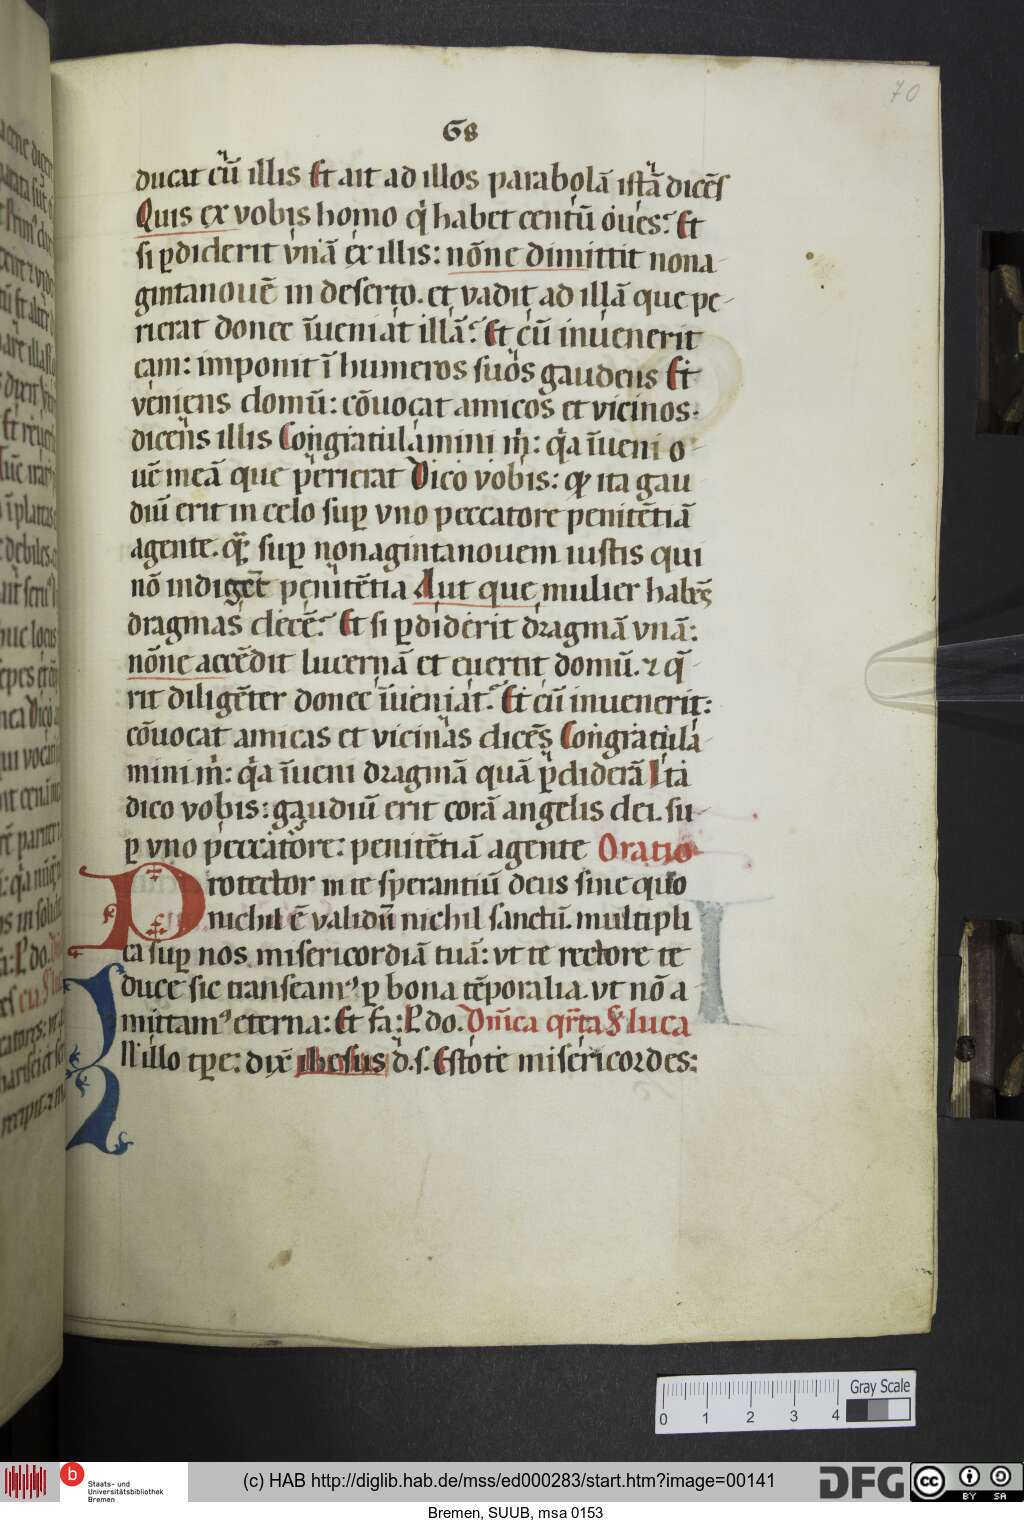 70
68
ducat cũ illis Et ait ad illos parabolã istã dicẽs
Quis ex vobis homo q̇ habet centũ oues? Et
si ꝑdiderit vnã ex illis: nõne dimittit nona-
gintanouẽ in deserto. et vadit ad illã que pe-
rierat donec ĩueniat illã? Et cũ inuenerit
eam: imponit ĩ humeros suos gaudens Et
veniens domũ: cõuocat amicos et vicinos.
dicens illis Congratulamini m̊: q̇a ĩueni o-
uẽ meã que perierat Dico vobis: ꝙ ita gau
diũ erit in celo suꝑ vno peccatore penitẽtiã
agente. q̃ꝫ suꝑ nonagintanouem iustis qui
nõ indigẽt penitẽtia Aut que mulier habẽs
dragmas decẽ? Et si ꝑdiderit dragmã vnã:
nõne accẽdit lucernã et euertit domũ. ⁊ q̃-
rit diligẽter donec ĩueniat? Et cũ inuenerit:
cõuocat amicas et vicinas dicẽs Congratula-
mini m̊: q̇a ĩueni dragmã quã ꝑdiderã Ita
dico vobis: gaudiũ erit corã angelis dei. su-
ꝑ vno peccatore: penitẽtiã agente Oratio
Protector in te sperantiũ deus sine quo
nichil ẽ validũ nichil sanctũ. multipli
ca suꝑ nos misericordiã tuã: vt te rectore te
duce sic transeamꝰ ꝑ bona tẽporalia. vt nõ a
mittamꝰ eterna: Et fa: P do. Dñica qr̃ta S luca
IN illo tꝑe: dix̃ ihesus d̊. s. Estote misericordes:
0 1 2 3 4
Gray Scale
b
Staats- und
Universitätsbibliothek
Bremen
(c) HAB http://diglib.hab.de/mss/ed000283/start.htm?image=00141
DFG
cc
BY SA
Bremen, SUUB, msa 0153